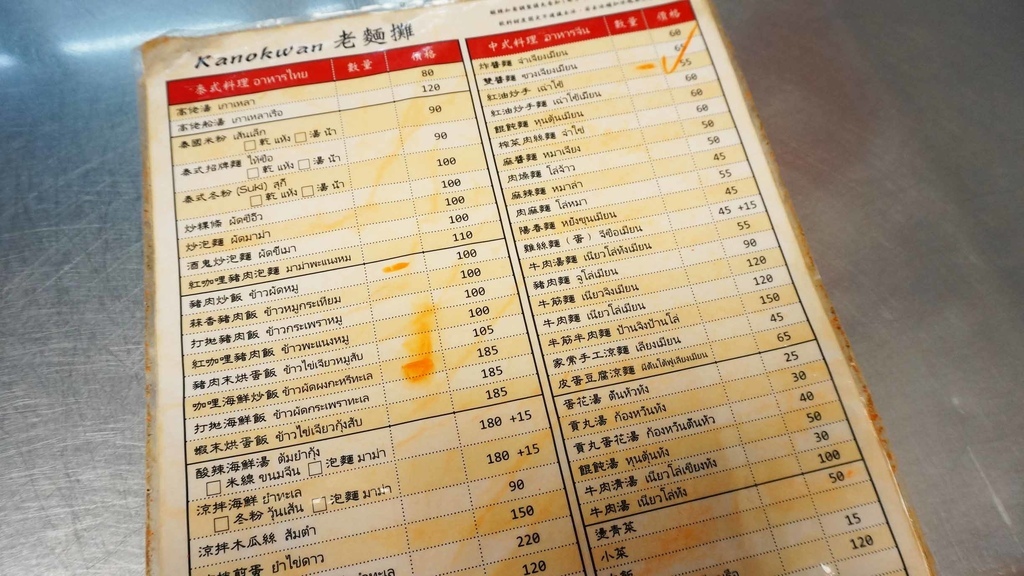 Kanokwan 老麵攤
泰式料理 อาหารไทย 數量 價格
高佬湯 เกาเหลา 80
高佬船湯 เกาเหลาเรือ 120
泰國米粉 เส้นเล็ก 90
乾 แห้ง 湯 น้ำ
泰式招牌麵 ให้ซือ 90
乾 แห้ง 湯 น้ำ
泰式冬粉 (Suki) สุกี้ 100
乾 แห้ง 湯 น้ำ
炒粿條 ผัดซีอิ๊ว 100
炒泡麵 ผัดมาม่า 100
酒鬼炒泡麵 ผัดขี้เมา 100
紅咖哩豬肉泡麵 มาม่าพะแนงหมู 110
豬肉炒飯 ข้าวผัดหมู 100
蒜香豬肉飯 ข้าวหมูกระเทียม 100
打拋豬肉飯 ข้าวกระเพราหมู 100
紅咖哩豬肉飯 ข้าวพะแนงหมู 100
豬肉末烘蛋飯 ข้าวไข่เจียวหมูสับ 105
咖哩海鮮炒飯 ข้าวผัดผงกะหรี่ทะเล 185
打拋海鮮飯 ข้าวผัดกระเพราทะเล 185
蝦末烘蛋飯 ข้าวไข่เจียวกุ้งสับ 185
酸辣海鮮湯 ต้มยำกุ้ง 180 +15
米線 ขนมจีน 泡麵 มาม่า
涼拌海鮮 ยำทะเล 180 +15
冬粉 วุ้นเส้น 泡麵 มาม่า
涼拌木瓜絲 ส้มตำ 90
煎蛋 ยำไข่ดาว 150
220
120
中式料理 อาหารจีน 數量 價格
炸醬麵 จ่าเจี้ยงเมียน 60
雙醬麵 ซวงเจี้ยงเมียน 65
紅油炒手 เฉาโซ่ 55
紅油炒手麵 เฉาโซ่เมียน 60
餛飩麵 หุนตุ้นเมียน 60
榨菜肉絲麵 จ๋าไช่ 60
麻醬麵 หมาเจี้ยง 50
肉燥麵 โล่จ้าว 50
麻辣麵 หมาล่า 45
肉麻麵 โล่หมา 55
陽春麵 หยังชุนเมียน 45
雞絲麵 (蛋) จีซือเมียน 45 +15
牛肉湯麵 เนียวโล่ทังเมียน 55
豬肉麵 จูโล่เมียน 90
牛筋麵 เนียวจิงเมียน 120
牛肉麵 เนียวโล่เมียน 120
半筋半肉麵 ป้านจิงป้านโล่ 150
家常手工涼麵 เลียงเมียน 45
皮蛋豆腐涼麵 65
蛋花湯 ตันหัวทัง 25
貢丸湯 ก้องหวันทัง 30
貢丸蛋花湯 ก้องหวันตันหัว 40
餛飩湯 หุนตุ้นทัง 50
牛肉清湯 เนียวโล่เซียงทัง 30
牛肉湯 เนียวโล่ทัง 100
燙青菜 50
小菜
15
120